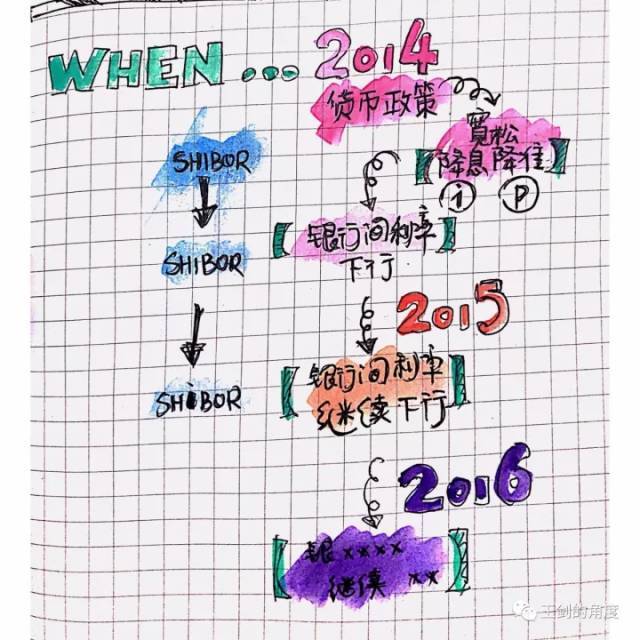 WHEN ... 2014
货币政策
宽松
SHIBOR
【降息降准】
i P
SHIBOR
【银行间利率
下行】
2015
SHIBOR
【银行间利率
继续下行】
2016
【银××××
继续 ××】
王剑的角度